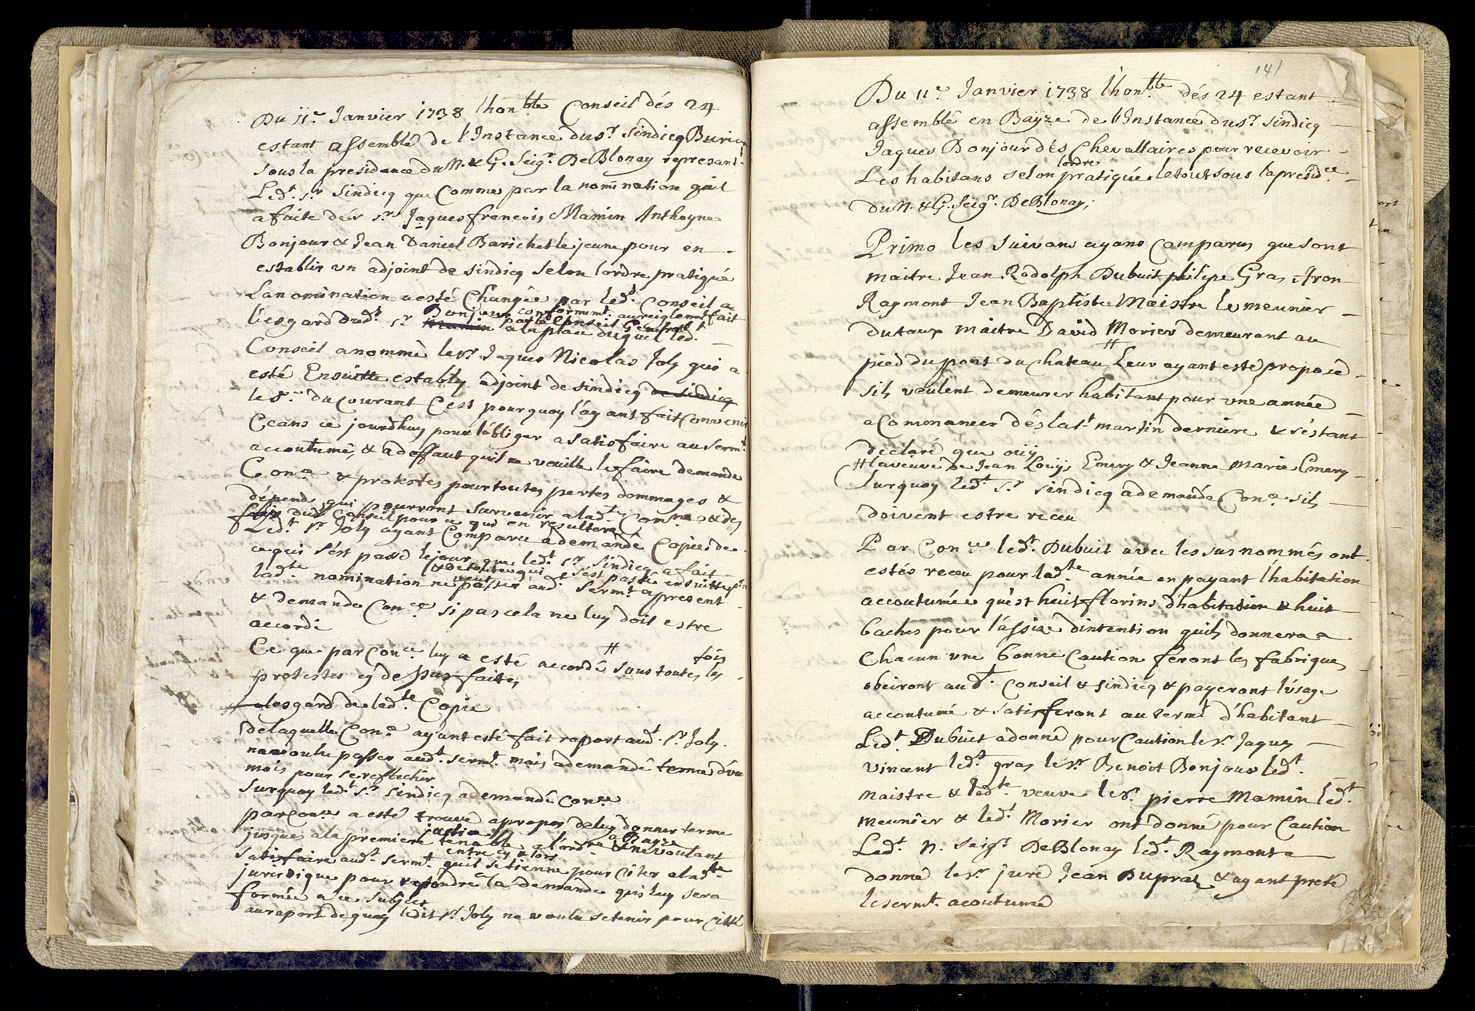 Du 11e. Janvier 1738 l'honble Conseil dés 24
estant assemblé de l'Instance du Sr. Sindicq
sous la presidence du N. & G. Seigr. DeBlonay represant.
Ledt. Sr. Sindicq que Comme par la nomination quil
a faite des Srs. Jaques françois Mamin Anthoyne
Bonjour & Jean Daniel Barichet le jeune pour en
establir un adjoint de Sindicq Selon l'ordre pratiqué
La nomination a esté Changée par ledt. Conseil a
l'esgard dudt. Sr. Bonjour conformemt. au reiglement fait
par le Conseil General
a la place duquel led.
Conseil a nommé le Sr. Jaques Nicolas Joly qui a
esté Ensuitte estably adjoint de Sindicq de Sindicq
le 8e. du Courant C'est pourquoy l'ayant fait Convenir
Ceans ce jourdhuy pour l'obliger a Satisfaire au Sermt.
accoutumé, & a deffaut quil ne veuille le faire demande
Conce & proteste pour toutes pertes dommages &
dépends qui pourront Survenir a ladt.
dudt. Conseil pour ce qui en resultera
Ledt. Sr. Joly ayant Comparu a demandé Copie de
ce qui s'est passé le jour que ledt. Sr. Sindicq a fait
ladte nomination & de tout ce qui s'est passé ensuitte
ne veut passer audt. Sermt. a present
& demande Conce. Si par cela ne luy doit estre
accordé
Ce que par Conce luy a esté accordé # sous toutes les
protestes cy de pur faites
# a lesgard de ledte Copie
De laquelle Conce ayant esté fait raport audt. Sr. Joly
na voulu passer audt. Sermt. mais a demandé terme d'un
mois pour se reflechir
Surquoy ledt. Sr. Sindicq a demandé Conce
par Conce a esté trouvé a propos de luy donner terme
jusques a la premiere justice
tenable a lordre & ne voulant
entre cy & lors
Satisfaire audt. Sermt. quil se tienne pour Citer a ladte
juridique pour repondre a la demande qui luy sera
formée a ce Subject
au raport de quoy ledit Sr. Joly na voulu se tenir pour Citté
141
Du 11e. Janvier 1738 l'honble dés 24 estant
assemblé en Bayze de l'Instance du Sr. Sindicq
Jaques Bonjour dés Chevallaires pour recevoir
Les habitans selon l'ordre pratiqué le tout sous la presidce
du N. & G. Seigr. DeBlonay;
Primo les Suivans ayans Comparus que sont
maitre Jean Rodolph Dubuit philipe Gras Aron
Raymont Jean Baptiste Maistre le meunier
dutaux maitre David Morier demeurant au
pied du pont du Chateau # Leur ayant esté proposé
sils veulent demeurer habitant pour une année
a Commancer dés la St. martin derniere & s'éstant
declaré que ouÿ
# la veuve de Jean Louÿs Emery & Jeanne Marie Emery
Surquoy ledt. Sr. Sindicq a demandé Conce Sils
doivent estre receu
Par Conce ledt. Dubuit avec les susnommés ont
estés receu pour ladte année en payant l'habitation
accoutumée qu'est huit florins d'habitation & huit
baches pour l'assize d'intention quils donneraa
Chacun une bonne Caution feront les fabriques
obeiront audt. Conseil & Sindicq & payeront l'usage
accoutumé & Satisferont au Sermt. d'habitant
Ledt. Dubuit a donné pour Caution le Sr. Jaques
Vincent ledt. gras le Sr. Benoit Bonjour ledt.
maistre & ladte veuve le Sr. pierre Mamin ledt.
meunier & ledt. Morier ont donné pour Caution
Ledt. N. Seigr. DeBlonay ledt. Raymont a
donné le Sr. juré Jean Dupraz & ayant preté
le sermt. acoutumé